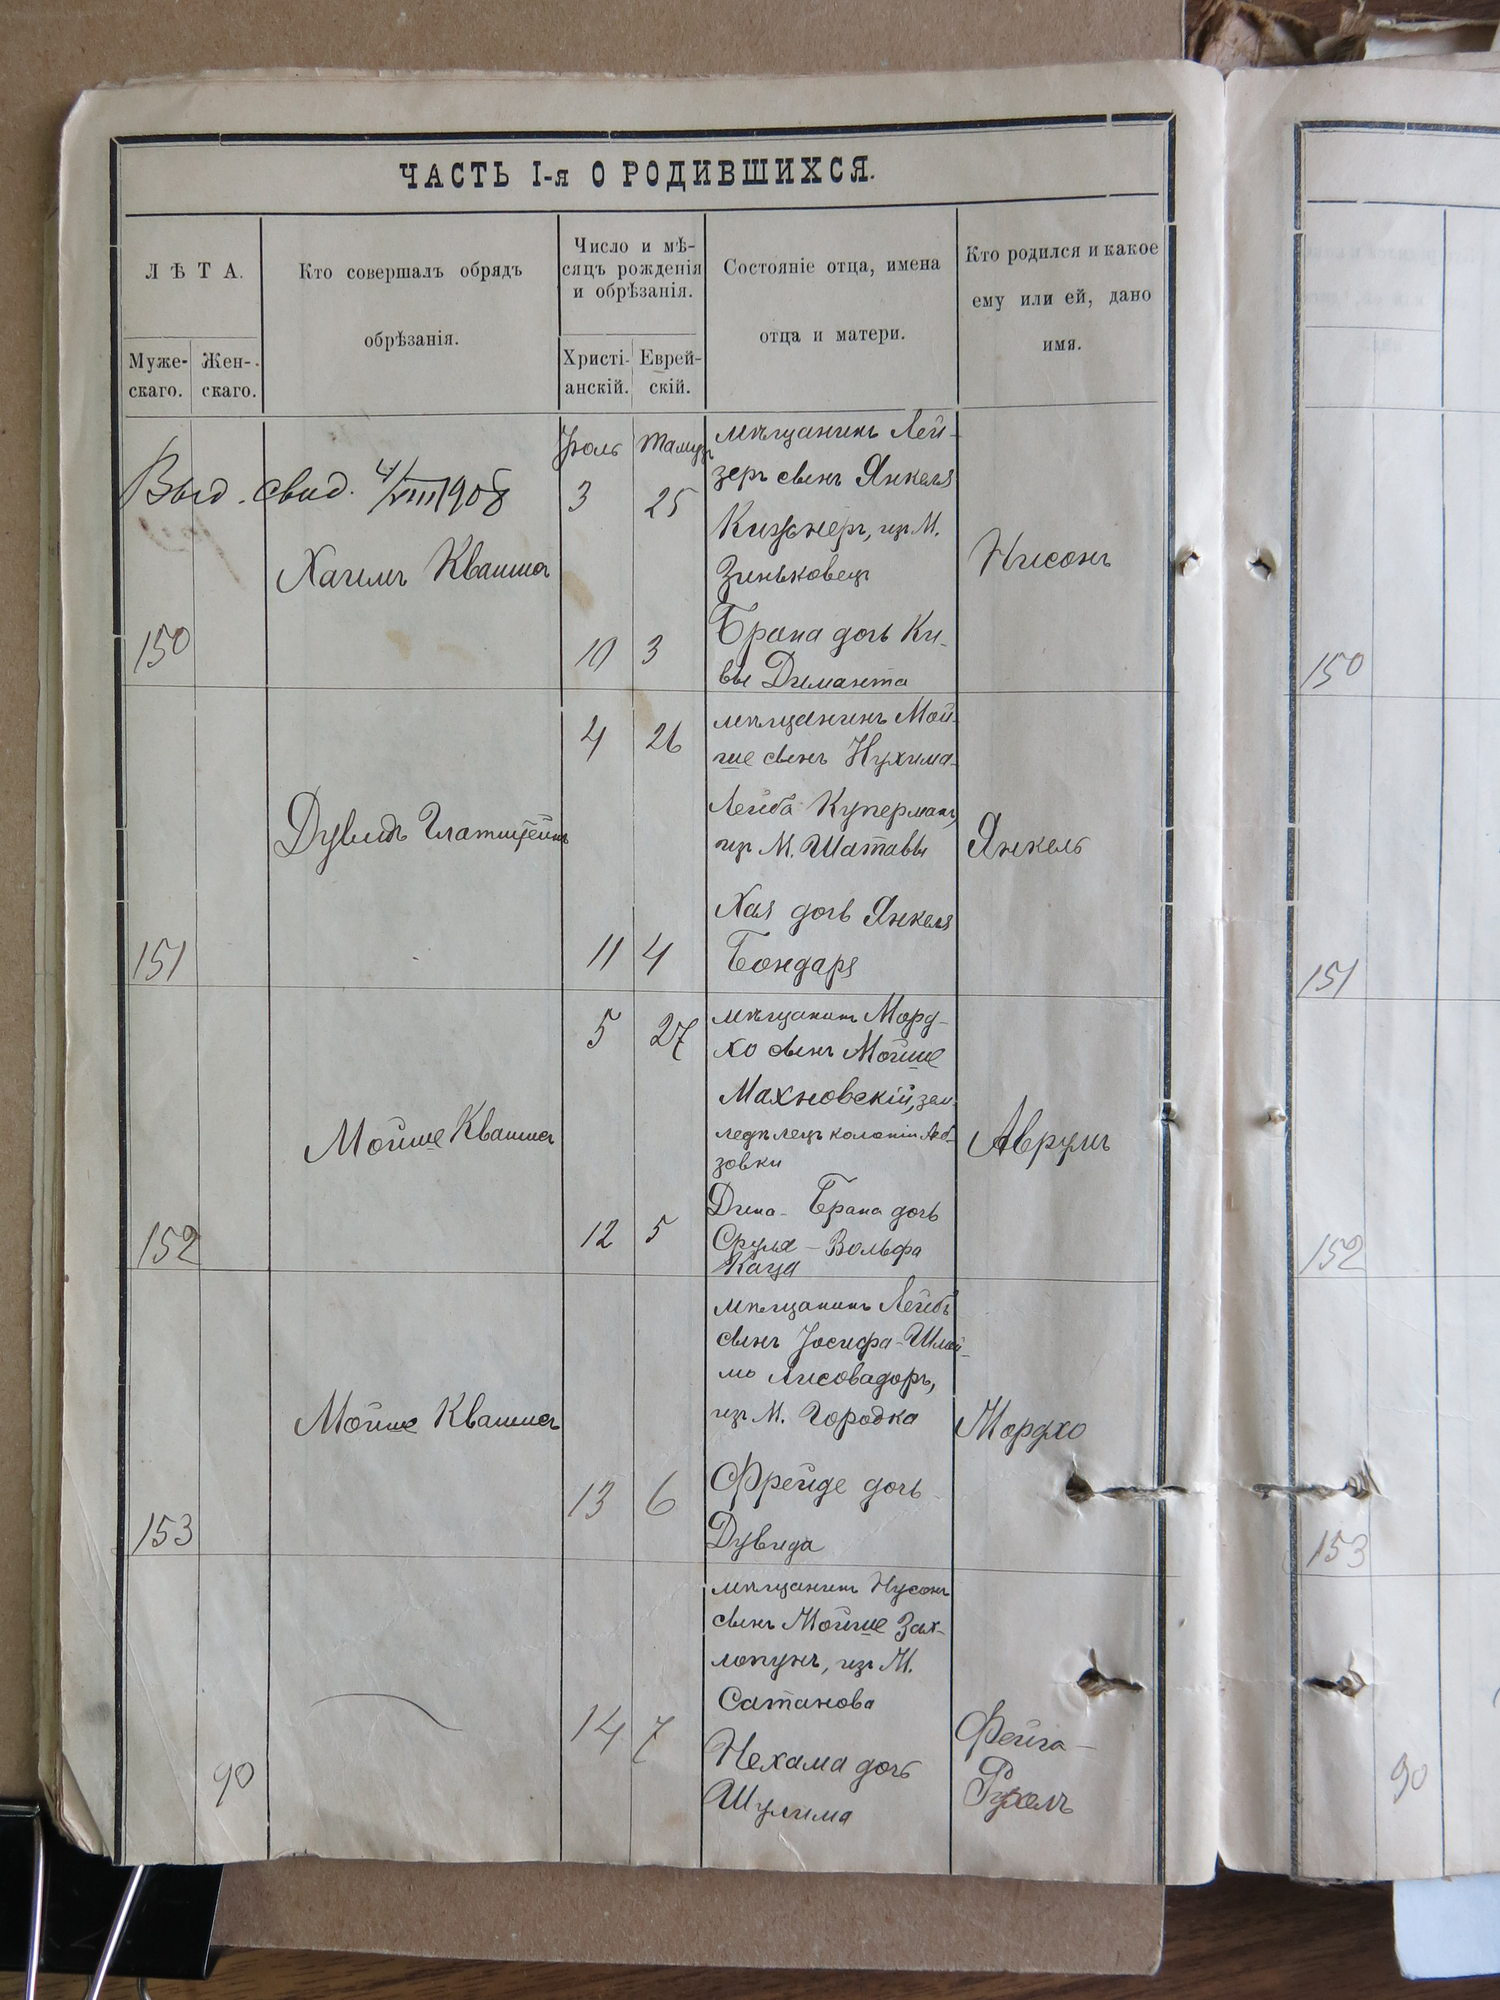 ЧАСТЬ I-я О РОДИВШИХСЯ.
ЛѢТА.
Муже-
скаго.
Жен-
скаго.
Кто совершалъ обрядъ
обрѣзанія.
Число и мѣ-
сяцъ рожденія
и обрѣзанія.
Христі-
анскій.
Еврей-
скій.
Состояніе отца, имена
отца и матери.
Кто родился и какое
ему или ей, дано
имя.
Выд. свид. 4/VIII 1908
150
Хаимъ Квашша
Іюль Тамуз
3 25
10 3
мѣщанинъ Лей-
зеръ сынъ Янкеля
изъ М.
Зиньковецъ
Брана дочь Ки-
вы Диманта
Нисонъ
151
Дувидъ Глатштейнъ
4 26
11 4
мѣщанинъ Мой-
ше сынъ Нухима-
Лейба Куперманъ,
изъ М. Шатавы
Хая дочь Янкеля
Бондаря
Янкель
152
Мойше Квашша
5 27
12 5
мѣщанинъ Морд-
хо сынъ Мойше
Махновскій, зем-
ледѣлецъ колоніи
зовки
Дина-Брана дочь
Сруля-Вольфа
Каца
Аврумъ
153
Мойше Квашша
13 6
мѣщанинъ Лейбъ
сынъ Іосифа-Шлой-
мо Лисоводоръ,
изъ М. Городка
Фрейде дочь
Дувида
Мордхо
90
14 7
мѣщанинъ Нусонъ
сынъ Мойше Зах-
лопунъ, изъ М.
Сатанова
Нехама дочь
Шулима
Фейга-
Рухль
150
151
152
153
90